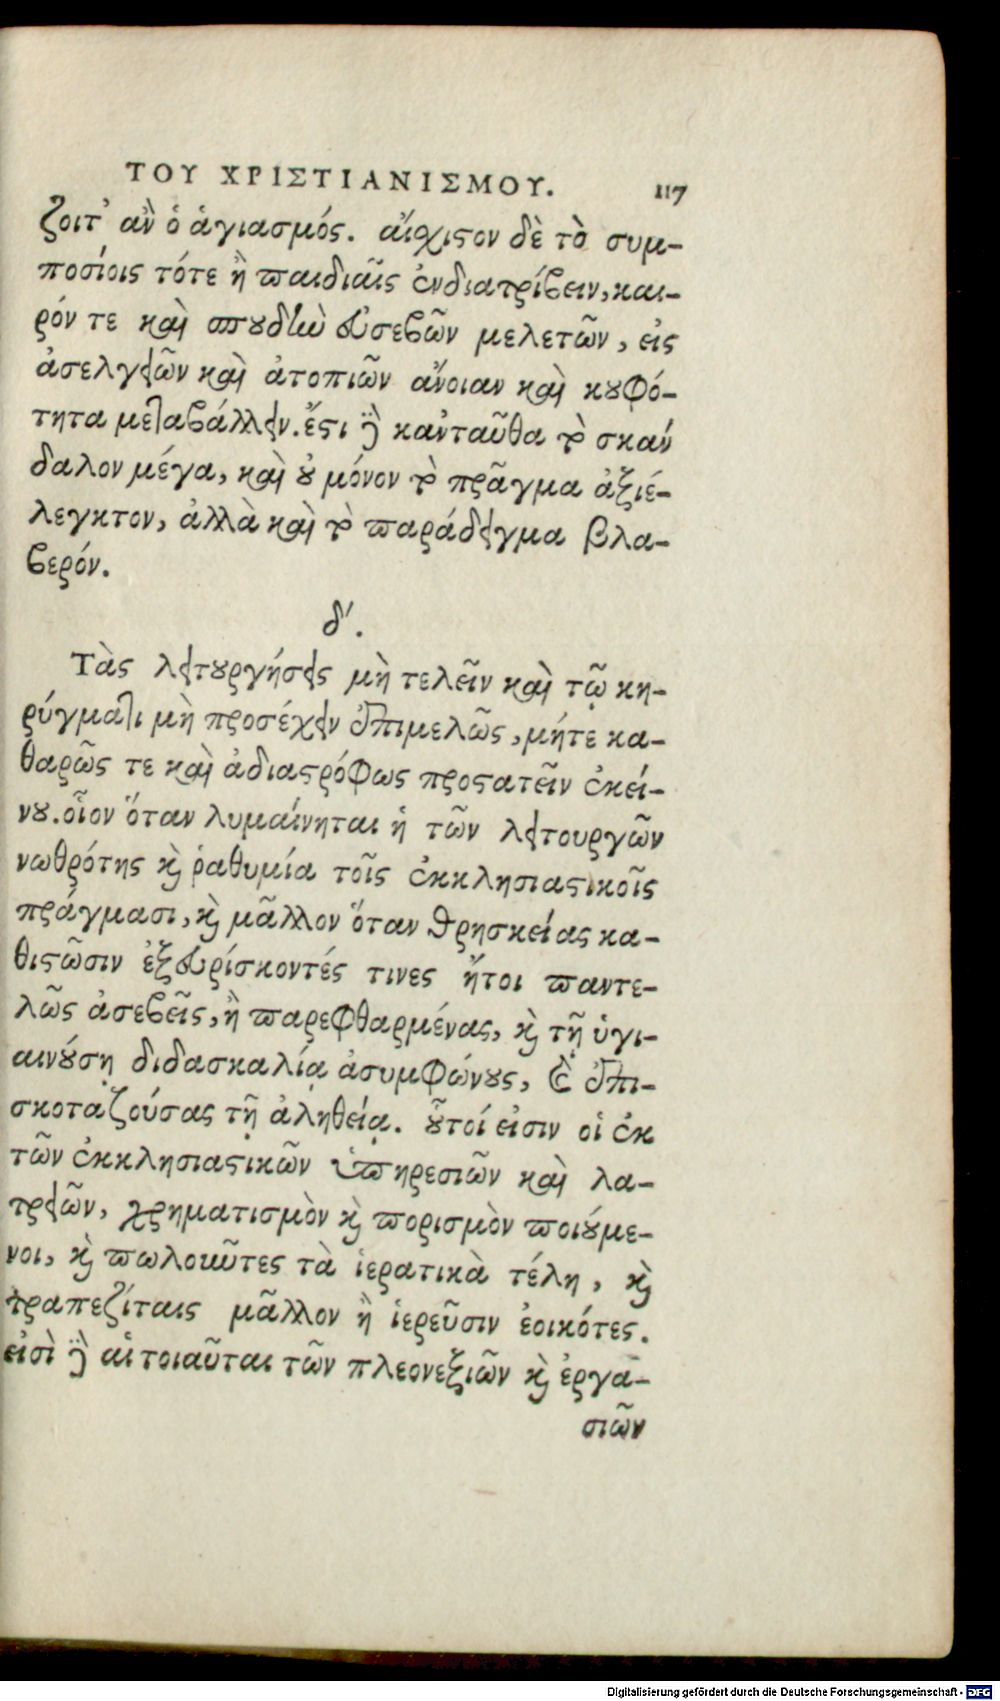 ΤΟΥ ΧΡΙΣΤΙΑΝΙΣΜΟΥ. 117
ζοιτ' ἂν ὁ ἁγιασμός. αἴσχιστον δὲ τὸ συμ-
ποσίοις τότε ἢ παιδιαῖς ἐνδιατρίβειν, και-
ρόν τε καὶ σπουδὴν εὐσεβῶν μελετῶν, εἰς
ἀσελγειῶν καὶ ἀτοπιῶν ἄνοιαν καὶ κουφό-
τητα μεταβάλλειν. ἔστι γὰρ κἀνταῦθα τὸ σκάν
δαλον μέγα, καὶ οὐ μόνον τὸ πρᾶγμα ἀξιέ-
λεγκτον, ἀλλὰ καὶ τὸ παράδειγμα βλα-
βερόν.
δ'.
Τὰς λειτουργήσεις μὴ τελεῖν καὶ τῷ κη-
ρύγματι μὴ προσέχειν ἐπιμελῶς, μήτε κα-
θαρῶς τε καὶ ἀδιαστρόφως προστατεῖν ἐκεί-
νου. οἷον ὅταν λυμαίνηται ἡ τῶν λειτουργῶν
νωθρότης καὶ ῥαθυμία τοῖς ἐκκλησιαστικοῖς
πράγμασι, καὶ μᾶλλον ὅταν θρησκείας κα-
θιστῶσιν ἐξευρίσκοντές τινες ἤτοι παντε-
λῶς ἀσεβεῖς, ἢ παρεφθαρμένας, καὶ τῇ ὑγι-
αινούσῃ διδασκαλίᾳ ἀσυμφώνους, καὶ ἐπι-
σκοταζούσας τῇ ἀληθείᾳ. οὗτοί εἰσιν οἱ ἐκ
τῶν ἐκκλησιαστικῶν ὑπηρεσιῶν καὶ λα-
τρειῶν, χρηματισμὸν καὶ πορισμὸν ποιούμε-
νοι, καὶ πωλοῦντες τὰ ἱερατικὰ τέλη, καὶ
τραπεζίταις μᾶλλον ἢ ἱερεῦσιν ἐοικότες.
εἰσὶ γὰρ αἱ τοιαῦται τῶν πλεονεξιῶν καὶ ἐργα-
σιῶν
Digitalisierung gefördert durch die Deutsche Forschungsgemeinschaft - DFG